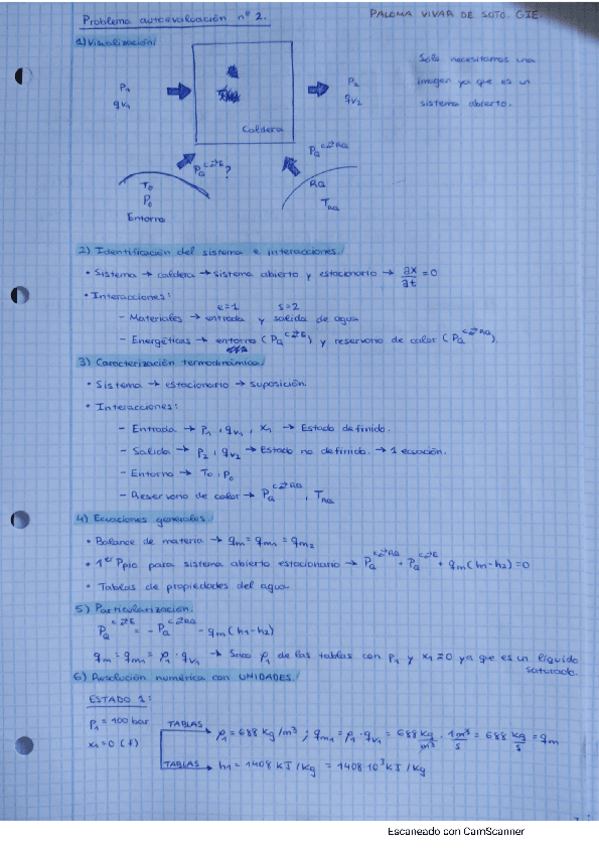 Problema autoevaluación nº 2.
PALOMA VIVAR DE SOTO. GIE
1) Visualización:
Solo necesitamos una
imagen ya que es un
sistema abierto.
P₁
qv₁
P₂
qv₂
Caldera
PQ^C⇄E ?
PQ^C⇄RQ
T₀
P₀
Entorno
RQ
TRQ
2) Identificación del sistema e interacciones.
• Sistema → caldera → sistema abierto y estacionario → ∂x/∂t = 0
• Interacciones:
e=1 s=2
- Materiales → entrada y salida de agua
- Energéticas → entorno (PQ^C⇄E) y reservorio de calor (PQ^C⇄RQ).
3) Caracterización termodinámica.
• Sistema → estacionario → suposición.
• Interacciones:
- Entrada → P₁, qv₁, x₁ → Estado definido.
- Salida → P₂, qv₂ → Estado no definido. → 1 ecuación.
- Entorno → T₀, P₀
- Reservorio de calor → PQ^C⇄RQ, TRQ
4) Ecuaciones generales.
• Balance de materia → qm = qm₁ = qm₂
• 1er Ppio para sistema abierto estacionario → PQ^C⇄RQ + PQ^C⇄E + qm(h₁-h₂) = 0
• Tablas de propiedades del agua.
5) Particularización.
PQ^C⇄E = - PQ^C⇄RQ - qm(h₁-h₂)
qm = qm₁ = ρ₁ · qv₁ → Saco ρ₁ de las tablas con p₁ y x₁=0 ya que es un líquido
saturado.
6) Resolución numérica con UNIDADES.
ESTADO 1:
P₁ = 100 bar
x₁ = 0 (f)
TABLAS → ρ₁ = 688 kg/m³ ; qm₁ = ρ₁ · qv₁ = 688 kg/m³ · 1 m³/s = 688 kg/s = qm
TABLAS → h₁ = 1408 KJ/kg = 1408·10³ KJ/kg
Escaneado con CamScanner